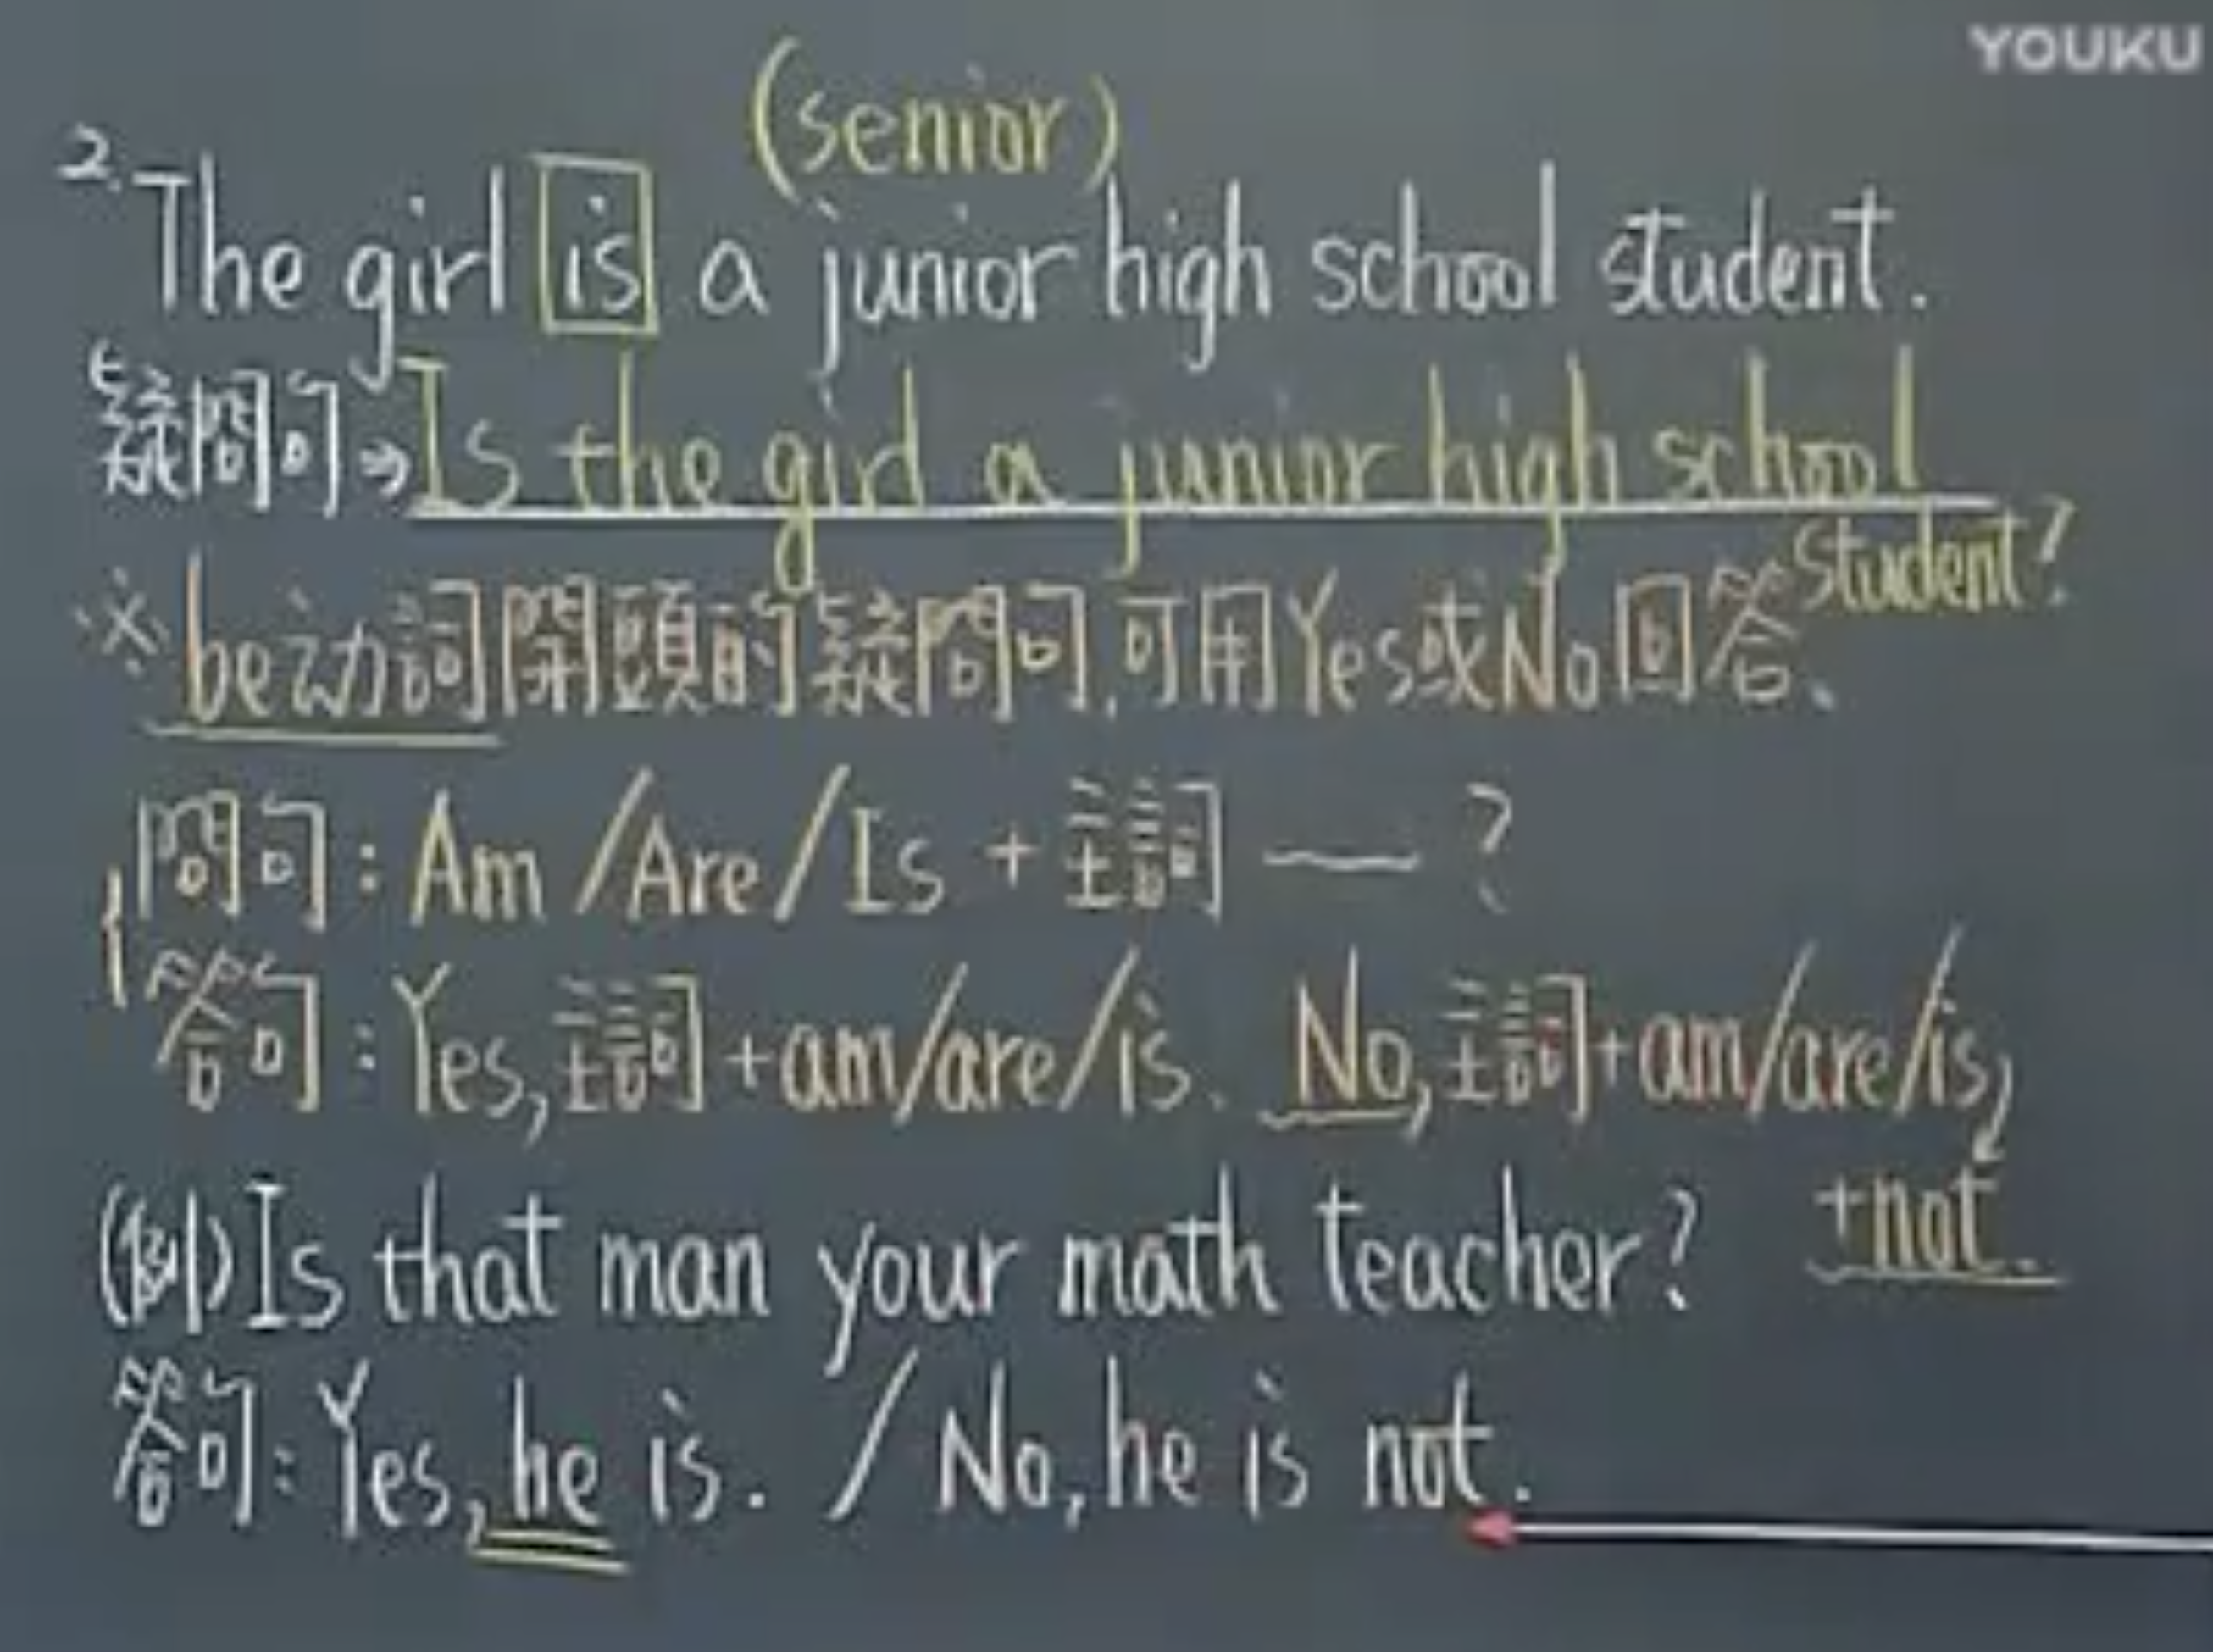 YOUKU
(senior)
2. The girl is a junior high school student.
疑問句⇒Is the girl a junior high school
student?
※be动詞開頭的疑問句,可用Yes或No回答、
問句:Am/Are/Is+主詞—?
答句:Yes,主詞+am/are/is、 No,主詞+am/are/is,
+not.
(例)Is that man your math teacher?
答句:Yes, he is. / No, he is not.